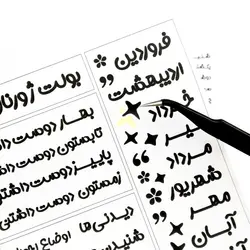 فروردین
اردیبهشت
خرداد
تیر
مرداد
شهریور
مهر
آبان
بولت ژورنا
بهار دوست داشت
تابستون دوست داشت
پاییز دوست داشتن
زمستون دوست داشتنی
دیدنی‌ها
شنید
اوضاع